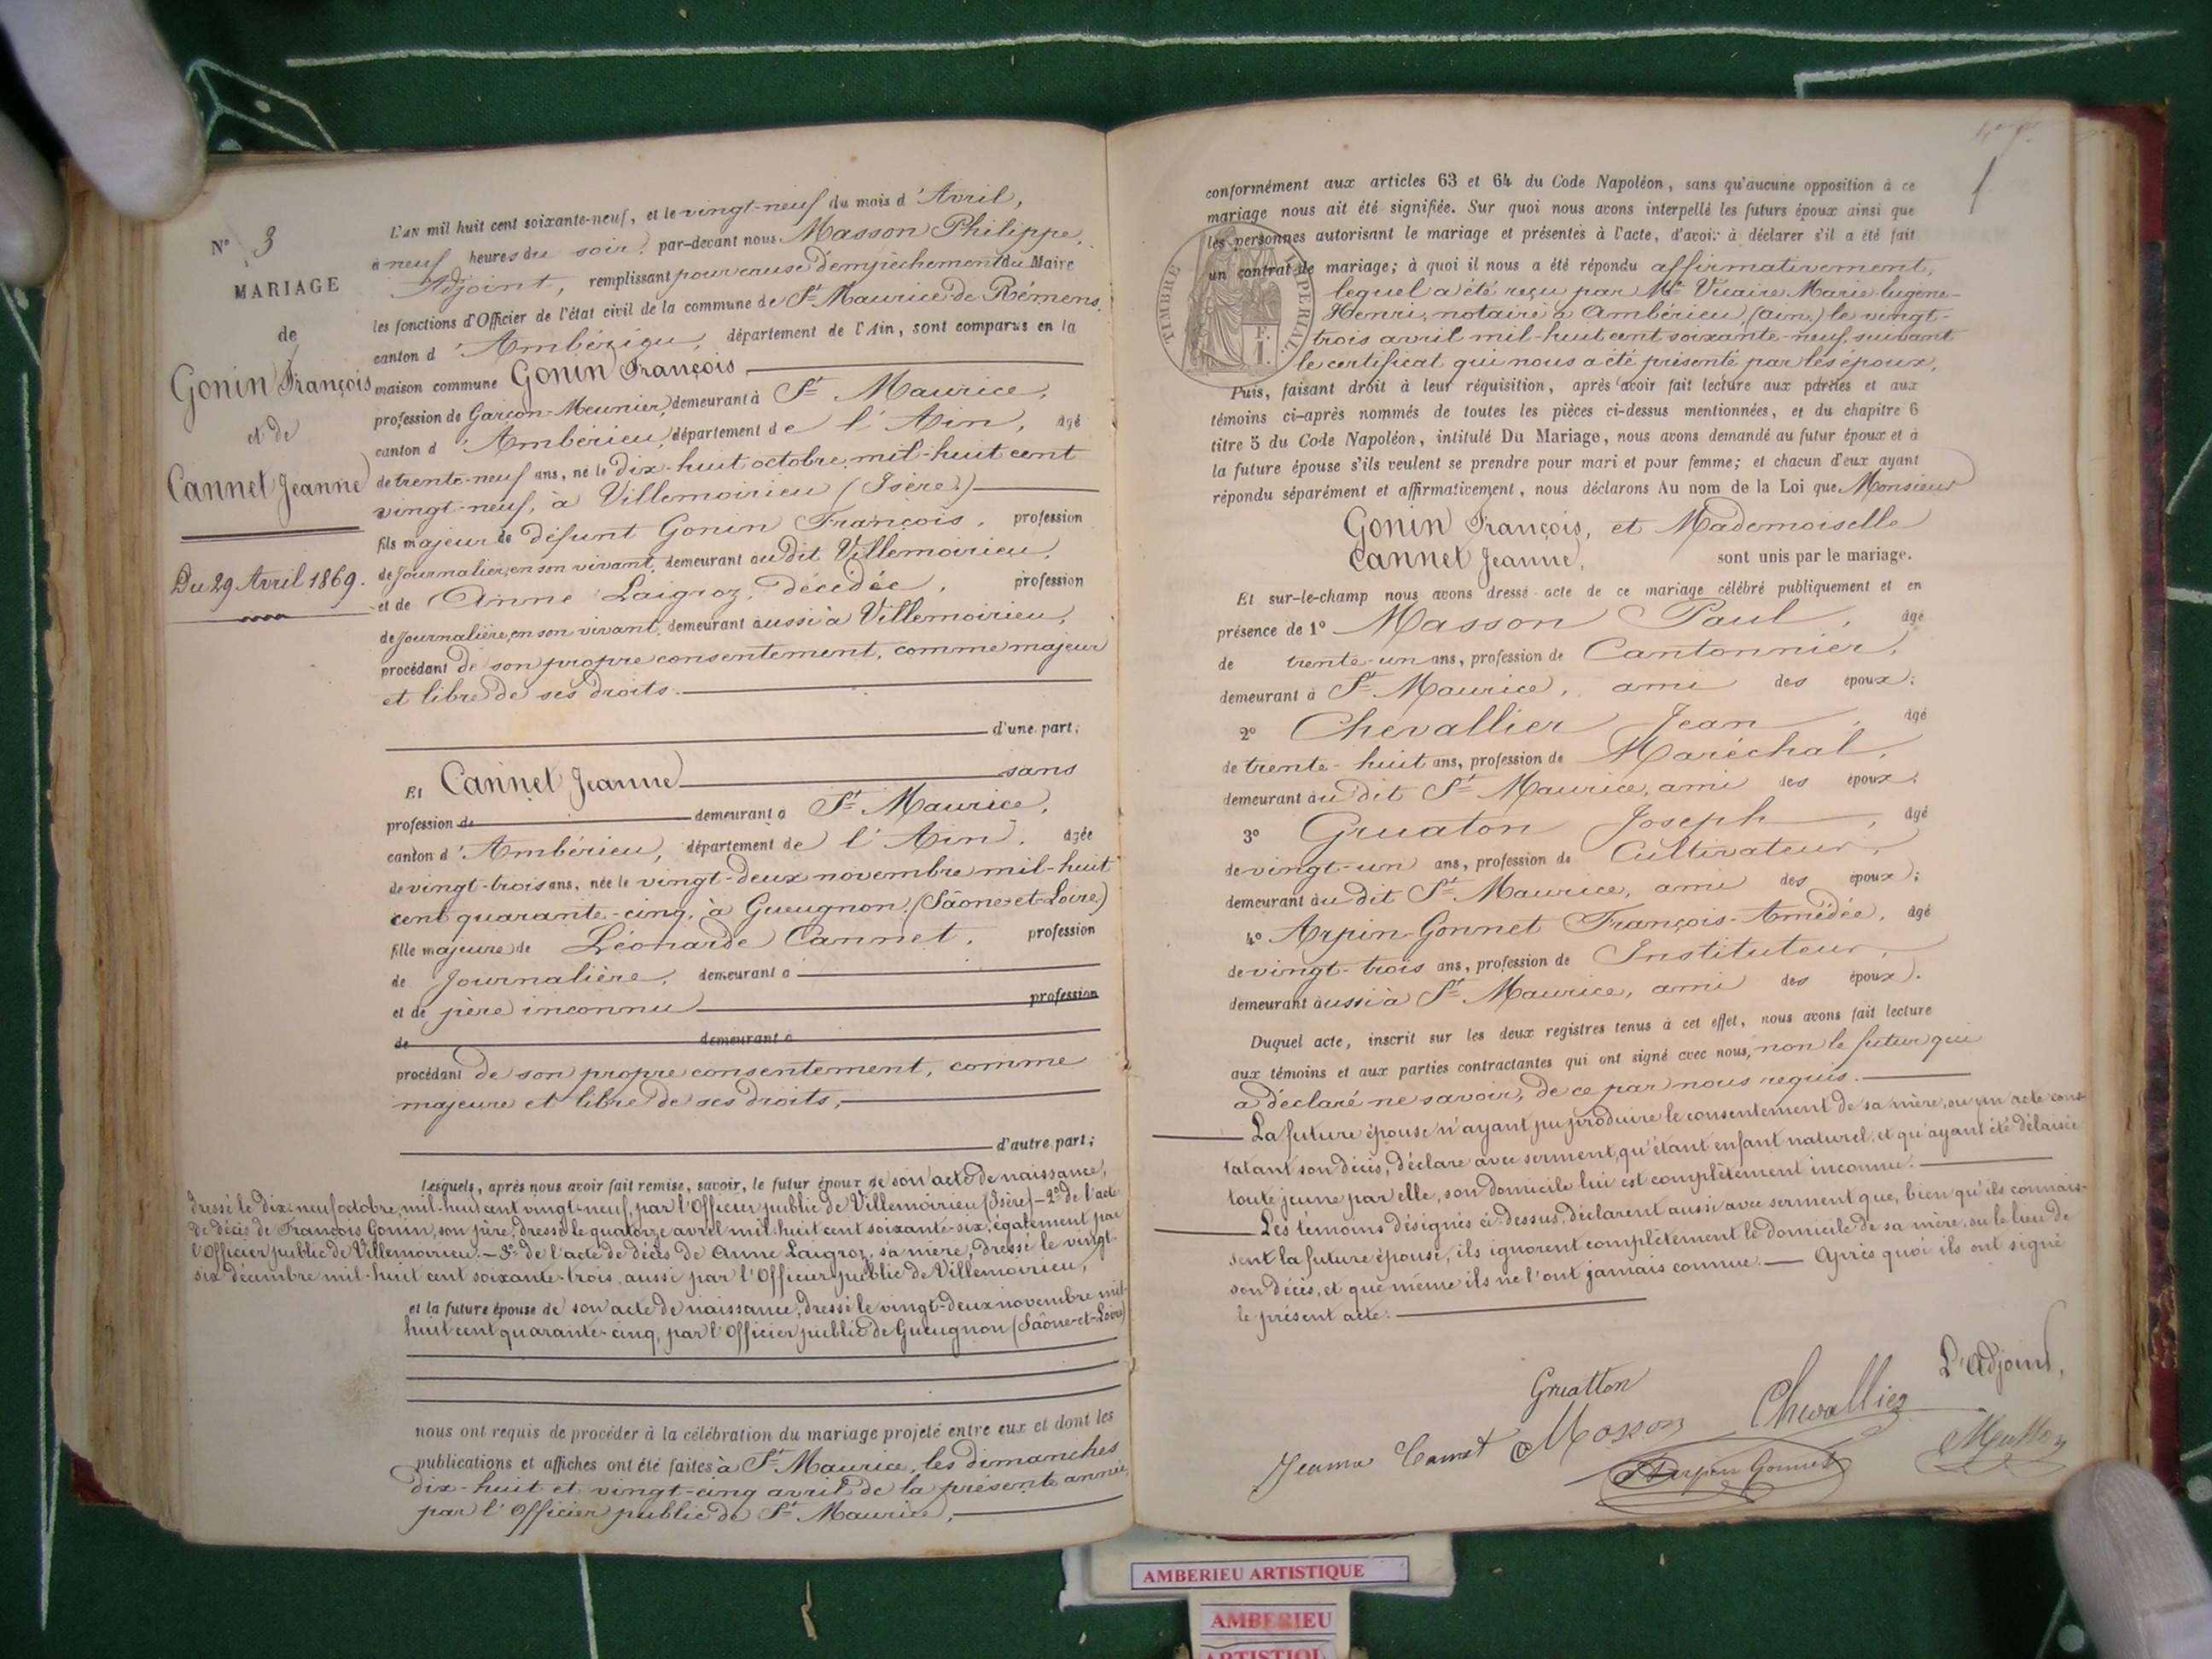 N° 3
MARIAGE
de
Gonin François
et de
Cannet Jeanne
Du 29 Avril 1869.
L'AN mil huit cent soixante-neuf, et le vingt-neuf du mois d'Avril,
à neuf heures du soir, par-devant nous Masson Philippe,
Adjoint, remplissant pour cause d'empêchement du Maire
les fonctions d'Officier de l'état civil de la commune de St Maurice de Rémens,
canton d'Ambérieu, département de l'Ain, sont comparus en la
maison commune Gonin François
profession de Garçon-Meunier, demeurant à St Maurice,
canton d'Ambérieu, département de l'Ain, âgé
de trente-neuf ans, né le dix-huit octobre mil-huit cent
vingt-neuf, à Villemoirieu (Isère)
fils majeur de défunt Gonin François, profession
de Journalier, en son vivant, demeurant au dit Villemoirieu,
et de Anne Laigroz, décédée, profession
de Journalière, en son vivant, demeurant aussi à Villemoirieu,
procédant de son propre consentement, comme majeur
et libre de ses droits.
d'une part;
Et Cannet Jeanne sans
profession de demeurant à St Maurice,
canton d'Ambérieu, département de l'Ain, âgée
de vingt-trois ans, née le vingt-deux novembre mil-huit
cent quarante-cinq, à Gueugnon (Sâone-et-Loire)
fille majeure de Léonarde Cannet, profession
de Journalière, demeurant à
et de père inconnu profession
de demeurant à
procédant de son propre consentement, comme
majeure et libre de ses droits,
d'autre part;
Lesquels, après nous avoir fait remise, savoir, le futur époux de son acte de naissance,
dressé le dix-neuf octobre mil-huit cent vingt-neuf, par l'Officier public de Villemoirieu (Isère) - 2° de l'acte
de décès de François Gonin, son père, dressé le quatorze avril mil-huit cent soixante-six, également par
l'Officier public de Villemoirieu. - 3° de l'acte de décès de Anne Laigroz, sa mère, dressé le vingt-
six décembre mil-huit cent soixante-trois, aussi par l'Officier public de Villemoirieu,
et la future épouse de son acte de naissance, dressé le vingt-deux novembre mil-
huit cent quarante-cinq, par l'Officier public de Gueugnon (Sâone-et-Loire)
nous ont requis de procéder à la célébration du mariage projeté entre eux et dont les
publications et affiches ont été faites à St Maurice, les dimanches
dix-huit et vingt-cinq avril de la présente année,
par l'Officier public de St Maurice,
conformément aux articles 63 et 64 du Code Napoléon, sans qu'aucune opposition à ce
mariage nous ait été signifiée. Sur quoi nous avons interpellé les futurs époux ainsi que
les personnes autorisant le mariage et présentes à l'acte, d'avoir à déclarer s'il a été fait
un contrat de mariage; à quoi il nous a été répondu affirmativement,
lequel a été reçu par Me Vicaire Marie Eugène-
Henri, notaire à Ambérieu (Ain) le vingt-
trois avril mil-huit cent soixante-neuf, suivant
le certificat qui nous a été présenté par les époux,
TIMBRE IMPERIAL
F.
1.
Puis, faisant droit à leur réquisition, après avoir fait lecture aux parties et aux
témoins ci-après nommés de toutes les pièces ci-dessus mentionnées, et du chapitre 6
titre 5 du Code Napoléon, intitulé Du Mariage, nous avons demandé au futur époux et à
la future épouse s'ils veulent se prendre pour mari et pour femme; et chacun d'eux ayant
répondu séparément et affirmativement, nous déclarons Au nom de la Loi que Monsieur
Gonin François, et Mademoiselle
Cannet Jeanne, sont unis par le mariage.
Et sur-le-champ nous avons dressé acte de ce mariage célébré publiquement et en
présence de 1° Masson Paul, âgé
de trente-un ans, profession de Cantonnier,
demeurant à St Maurice, ami des époux;
2° Chevallier Jean, âgé
de trente-huit ans, profession de Maréchal,
demeurant au dit St Maurice, ami des époux;
3° Gruaton Joseph, âgé
de vingt-un ans, profession de Cultivateur,
demeurant au dit St Maurice, ami des époux;
4° Arpin-Gonnet François-Amédée, âgé
de vingt-trois ans, profession de Instituteur,
demeurant aussi à St Maurice, ami des époux.
Duquel acte, inscrit sur les deux registres tenus à cet effet, nous avons fait lecture
aux témoins et aux parties contractantes qui ont signé avec nous, non le futur qui
a déclaré ne savoir, de ce par nous requis.
La future épouse n'ayant pu produire le consentement de sa mère, ou un acte cons-
tatant son décès, déclare avec serment, qu'étant enfant naturel, et qu'ayant été délaisée
toute jeune par elle, son domicile lui est complètement inconnu.
Les témoins désignés ci-dessus, déclarent aussi avec serment que, bien qu'ils connais-
sent la future épouse, ils ignorent complètement le domicile de sa mère, ou le lieu de
son décès, et que même ils ne l'ont jamais connue. — Après quoi ils ont signé
le présent acte.
L'Adjoint,
Gruatton
Chevallier
Jeanne Cannet Masson
Arpin Gonnet
AMBERIEU ARTISTIQUE
AMBERIEU
ARTISTIQU